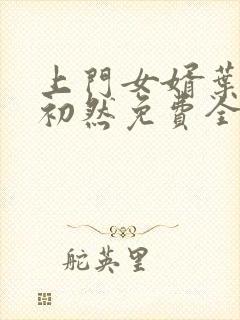 上門女婿葉
初然免費全
舵英里